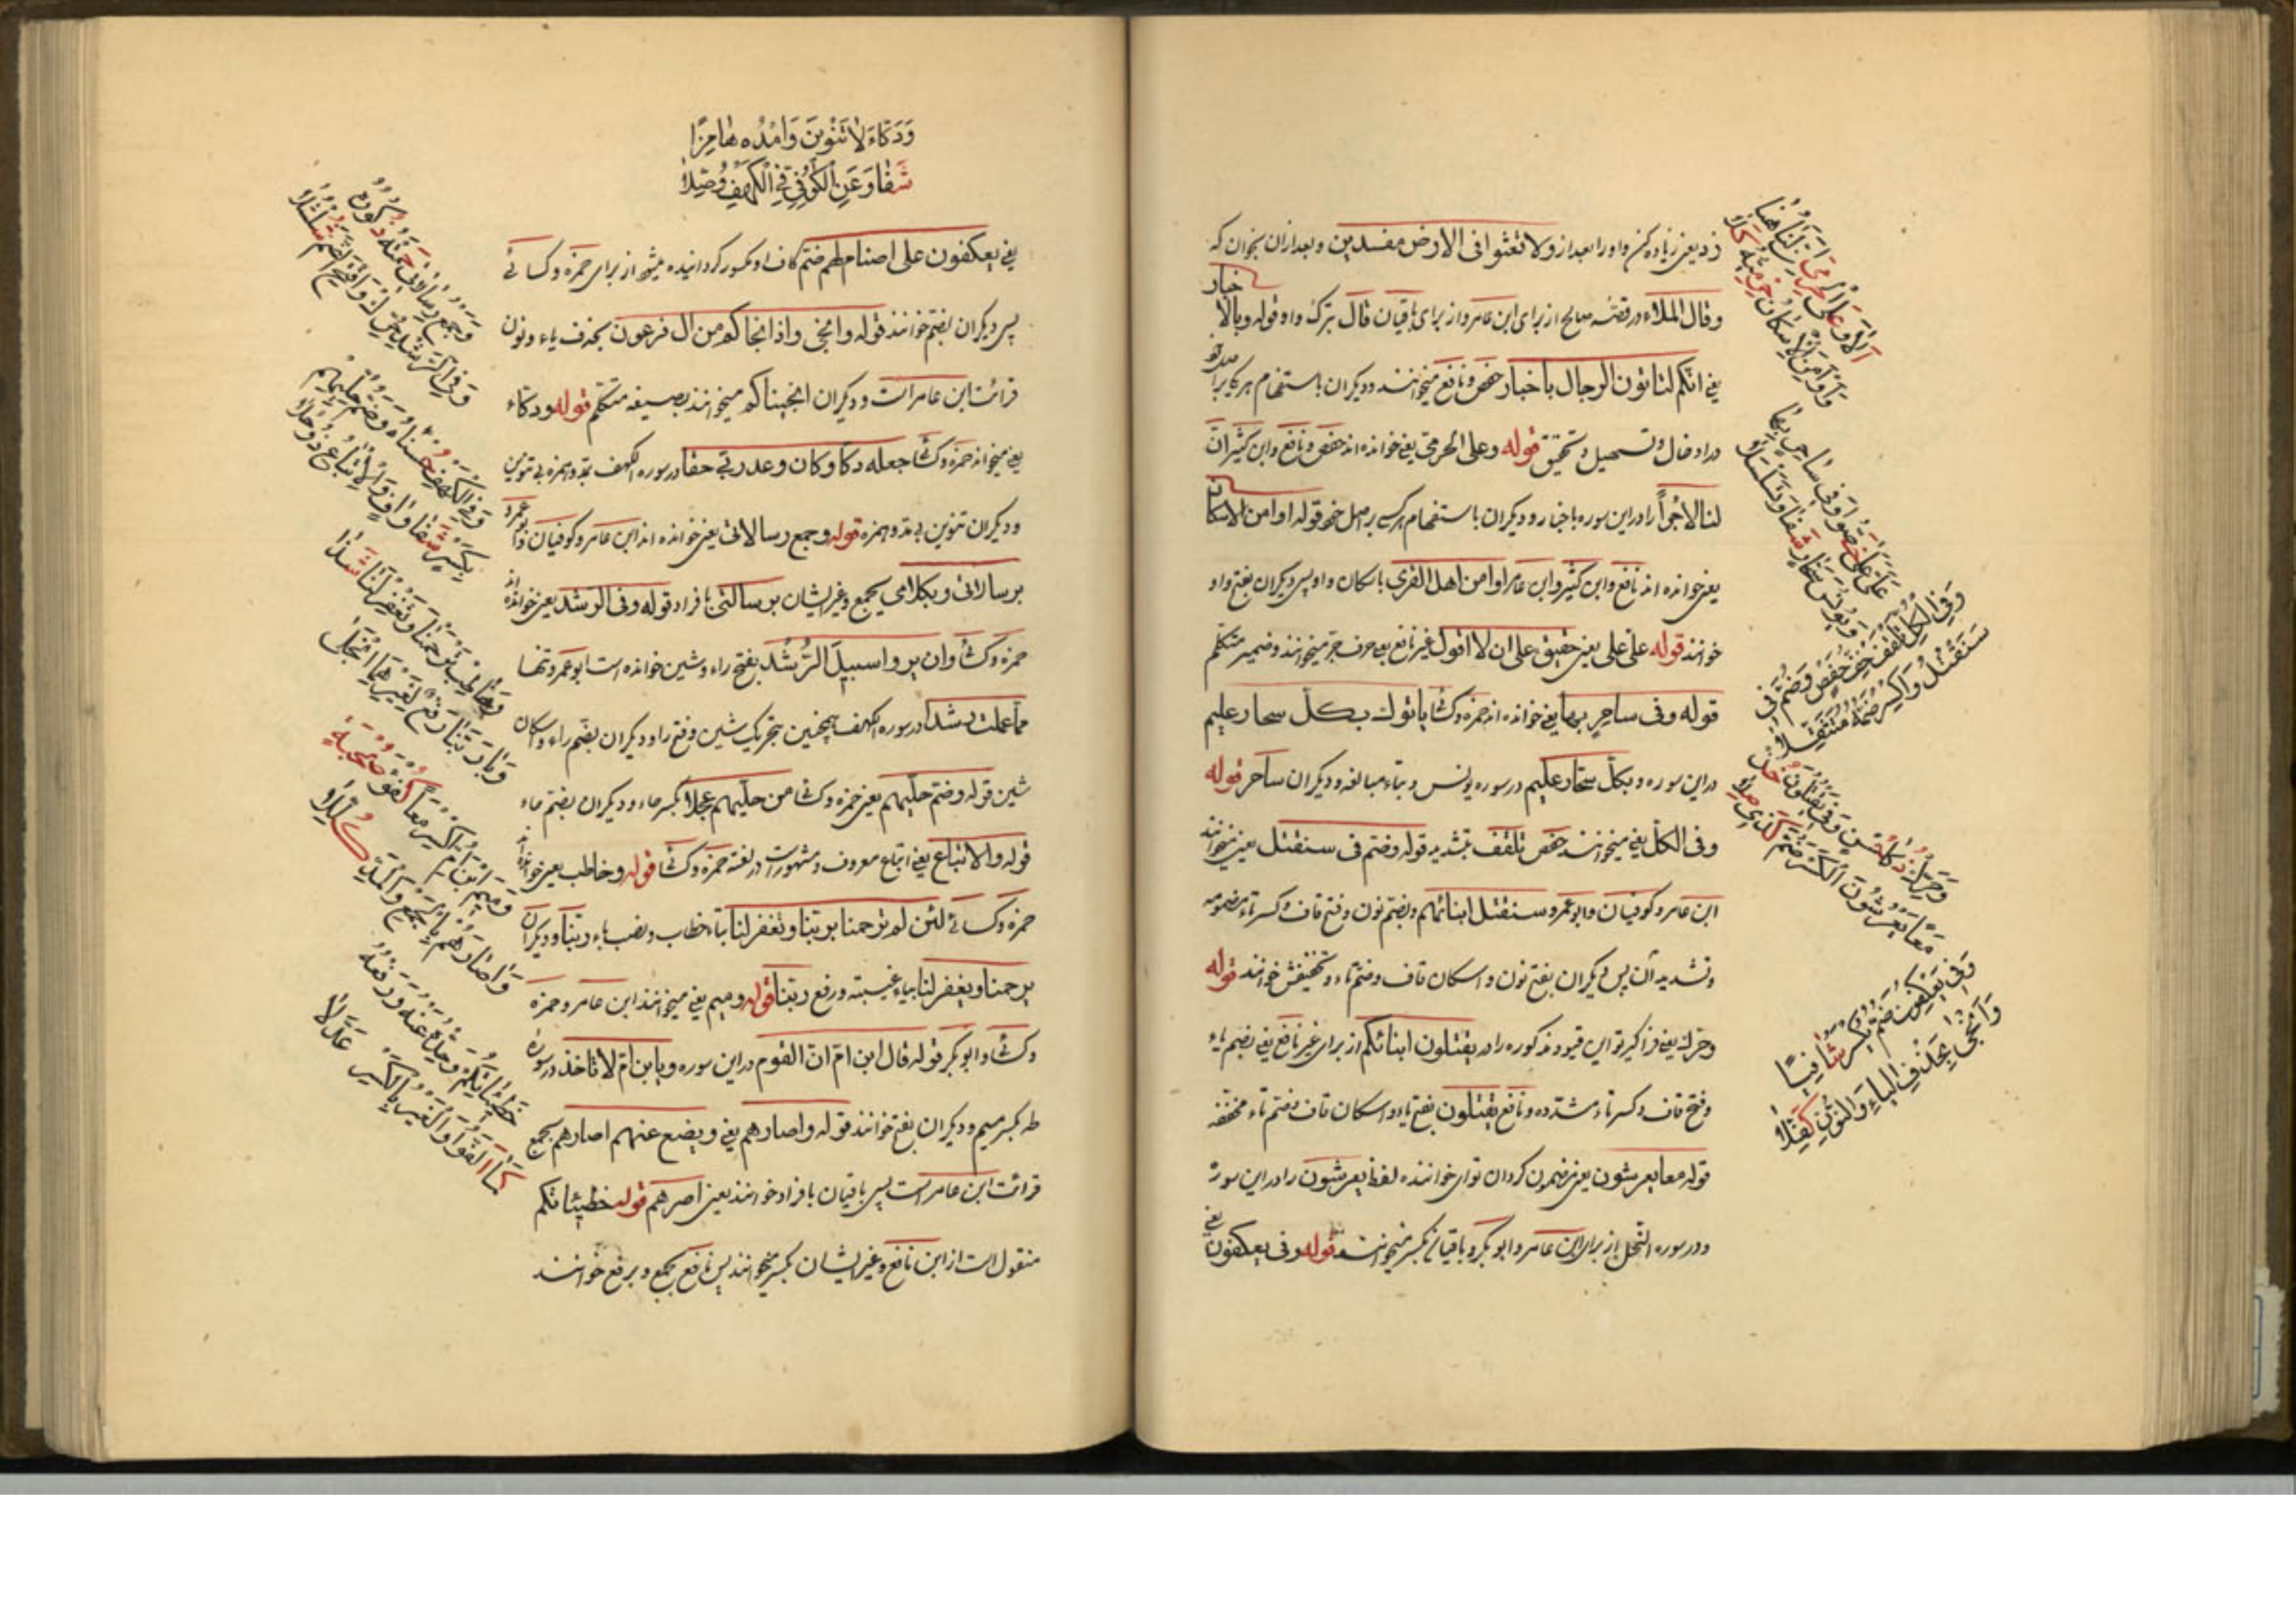 زد یعنی زیاده کن واو را بعد از ولا تعثوا فی الارض مفسدین و بعد ازان بخوان که
وقال الملاء در قصّه صالح از برای ابن عامر و از برای باقیان قال بترک واو قوله وبالاخبار
یعنی انّکم لتاتون الرجال باخبار حفص و نافع میخوانند و دیکران باستفهام هریک را
در ادخال و تسهیل و تحقیق قوله وعلی الحرمیّ یعنی خوانده اند حفص و نافع و ابن کثیر انّ
لنا لاجراً را در این سوره باخبار و دیکران باستفهام قوله او امن الاسکان
یعنی خوانده اند نافع و ابن کثیر و ابن عامر او امن اهل القری باسکان واو پس دیکران بفتح واو
خوانند قوله علیّ علی یعنی حقیق علی ان لا اقول غیر نافع یعنی حرف جرّ میخوانند و ضمیر متکلّم
قوله وفی ساحر بها یعنی خوانده اند حمزه و کسا یاتوك بکل سحار علیم
در این سوره و بکلّ سحّار علیم در سوره یونس و بناء مبالغه و دیکران ساحر قوله
وفی الکلّ یعنی میخوانند حفص تلقف بتشدید قوله وضمّ فی سنقتل یعنی میخوانند
ابن عامر و کوفیان و ابو عمرو سنقتل ابنائهم و بضمّ نون و فتح قاف و کسر تاء مضمومه
و تشدید آن پس دیکران بفتح نون و اسکان قاف و ضمّ تاء و تخفیفش خوانند قوله
وحرّك یعنی فراکیر تو این قیود مذکوره را در یقتلون ابنائکم از برای غیر نافع یعنی بضم یاء
و فتح قاف و کسر تاء مشدّده و نافع یقتلون بفتح یاء و اسکان قاف و ضمّ تاء مخفّفه
قوله معا یعرشون یعنی مضموم کردان تو ای خواننده لفظ یعرشون را در این سوره
و در سوره النّحل از برای ابن عامر و ابو بکر و باقیان بکسر میخوانند قوله وفی یعکفون یعنی
الا وعلی الحرمیّ انّ لنا هنا
واو امن الاسکان حرمیّه کلا
علیّ علی خصّوا وفی ساحر بها
ویونس سحّار شفا وتسلسلا
وفی الکلّ تلقف خفّ حفص وضمّ فی
سنقتل واکسر ضمّه متثقّلا
وحرّك ذکا حسن وفی یقتلون خذ
معا یعرشون الکسر ضمّ کذی صلا
وفی یعکفون الضمّ یکسر شافیا
وانجی بحذف الیاء والنّون کفّلا
ودکّاء لا تنوین وامدده هامزا
شفا وعن الکوفیّ فی الکهف وصّلا
یعنی یعکفون علی اصنام لهم ضمّ کاف او مکسور کردانیده میشود از برای حمزه و کسائے
پس دیکران بضمّ خوانند قوله وانجی واذ انجاکم من ال فرعون بحذف یاء و نون
قرائت ابن عامر است و دیکران انجیناکم میخوانند بصیغه متکلّم قوله ودکاء
یعنی میخواند حمزه و کسا جعله دکا وکان وعد ربّی حقا در سوره الکهف بمد و همزه بی تنوین
و دیکران تنوین بی مد و همزه قوله وجمع رسالاتی یعنی خوانده اند ابن عامر و کوفیان و ابو عمرو
برسالاتی وبکلامی بجمع و غیر ایشان برسالتی بافراد قوله وفی الرشد یعنی خوانده اند
حمزه و کسا وان یروا سبیل الرّشد بفتح راء و شین خوانده است ابو عمرو تنها
ممّا علمت رشدا در سوره الکهف همچنین بتحریک شین و فتح را و دیکران بضم راء و اسکان
شین قوله وضمّ حلیّهم یعنی حمزه و کسا من حلیّهم عجلا بکسر حاء و دیکران بضمّ حاء
قوله والاتباع یعنی اتباع معروف و مشهور است در لغته حمزه و کسا قوله وخاطب یعنی خوانده اند
حمزه و کسائے لئن لم ترحمنا ربّنا وتغفر لنا بتاء خطاب و نصب باء ربّنا و دیکران
یرحمنا ویغفر لنا بیاء غیبته و رفع ربّنا قوله ومیم یعنی میخوانند ابن عامر و حمزه
و کسا و ابو بکر قوله قال ابن امّ انّ القوم در این سوره و یابن امّ لا تاخذ در سوره
طه بکسر میم و دیکران بفتح خوانند قوله واصارهم یعنی ویضع عنهم اصارهم بجمع
قرائت ابن عامر است پس باقیان بافراد خوانند یعنی اصرهم قوله خطیئاتکم
منقول است از ابن نافع و غیر ایشان بکسر میخوانند پس نافع بجمع و برفع خوانند
وجمع رسالاتی حمته ذکوره
وفی الرّشد حرّك وافتح الضّمّ شلشلا
وفی الکهف حسناه وضمّ حلیّهم
بکسر شفا واف والاتباع ذو حلا
وخاطب ترحمنا وتغفر لنا شذا
وبا ربّنا رفع لغیرهما انجلا
ومیم ابن امّ اکسر معا کفو صحبة
واصارهم بالجمع والمدّ کلّلا
خطیئاتکم وحّده عنه ورفعه
کما الفوا والغیر بالکسر عدّلا